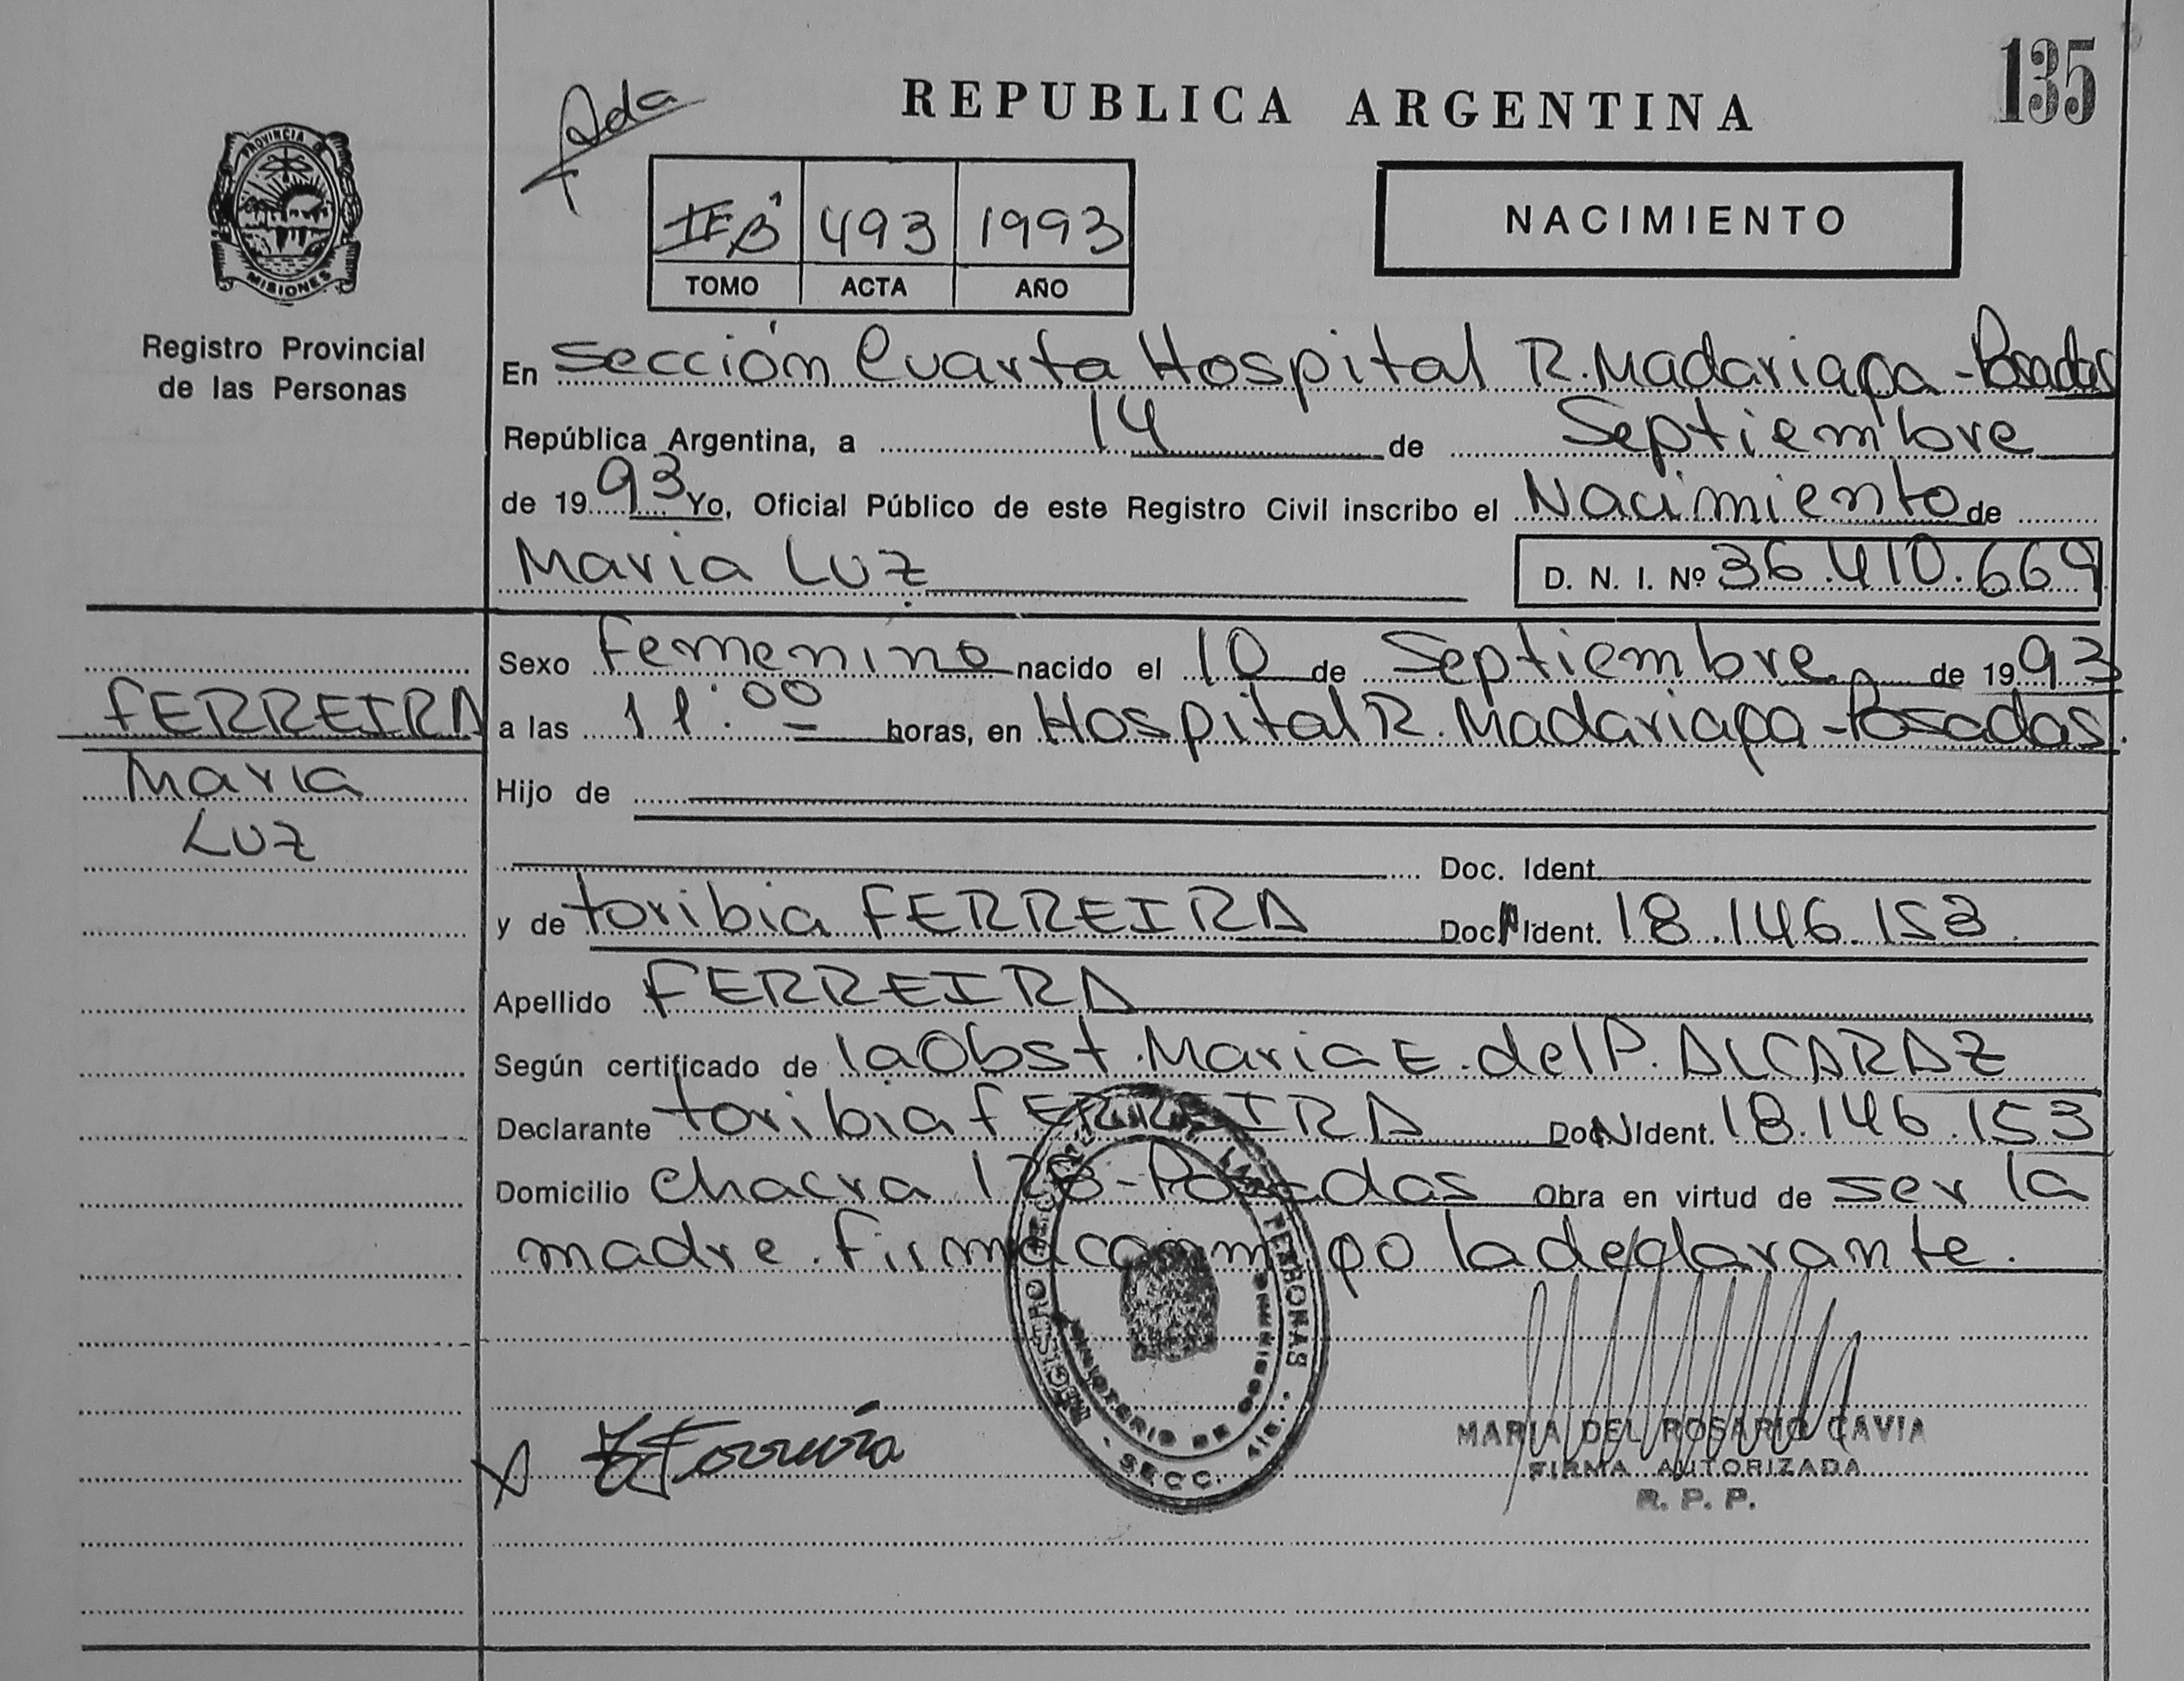 135
REPUBLICA ARGENTINA
NACIMIENTO
493 1993
TOMO ACTA AÑO
PROVINCIA DE
MISIONES
Registro Provincial
de las Personas
En Sección Cuarta Hospital R. Madariaga - Posadas
República Argentina, a 14 de Septiembre
de 1993 Yo, Oficial Público de este Registro Civil inscribo el Nacimiento de
Maria Luz D. N. I. Nº 36.410.669
FERREIRA
Maria
Luz
Sexo Femenino nacido el 10 de Septiembre de 1993
a las 11:00 horas, en Hospital R. Madariaga - Posadas.
Hijo de
Doc. Ident.
y de toribia FERREIRA Doc. Ident. 18.146.153
Apellido FERREIRA
Según certificado de la Obst. Maria E. del P. ALCARAZ
Declarante toribia FERREIRA Doc. Ident. 18.146.153
Domicilio chacra - Posadas Obra en virtud de ser la
madre. Firma la declarante.
REGISTRO DE LAS PERSONAS
MINISTERIO DE GOBIERNO
SECC. 4ta.
Ferreira
MARIA DEL ROSARIO CAVIA
FIRMA AUTORIZADA
R. P. P.